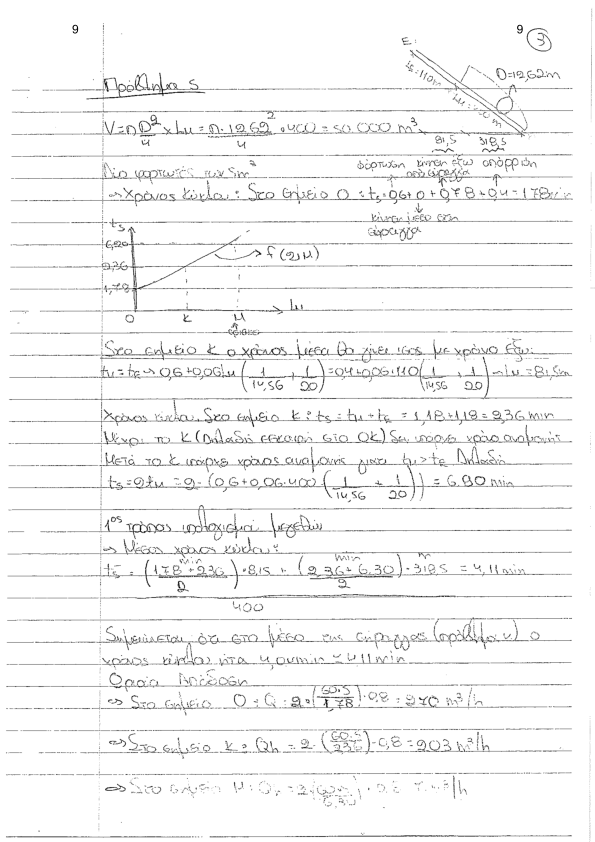 9
9 3
Ε.
Πρόβλημα 5
t_ε=110m
Lμ=400m
D=12,62m
V=πD²/4 × Lμ = π·12,62²/4 · 400 = 50.000 m³
81,5 318,5
Δύο φορτωτές των 5m³ φόρτωση κίνηση έξω απόρριψη
από σήραγγα
→ Χρόνος κύκλου: Στο σημείο Ο = ts = 0,6+0+0,78+0,4=1,78min
κίνηση μέσα στη
σήραγγα
ts
6,20
2,36
1,78
f(2tμ)
Ο Κ Μ Lμ
Στο σημείο Κ ο χρόνος μέσα θα γίνει ίσος με χρόνο έξω:
tμ=tε → 0,6+0,06Lμ(1/14,56 + 1/20)=0,4+0,06·110(1/14,56 + 1/20) → Lμ=81,5m
Χρόνος κύκλου. Στο σημείο Κ: ts = tμ + tε = 1,18+1,18=2,36 min
Μέχρι το Κ (Δηλαδή εκσκαφή στο ΟΚ) δεν υπάρχει χρόνος αναμονής
Μετά το Κ υπάρχει χρόνος αναμονής γιατί tμ>tε Δηλαδή
ts=2tμ=2·(0,6+0,06·400(1/14,56 + 1/20)) = 6.80 min
1ος τρόπος υπολογισμού μεγεθών
→ Μέσος χρόνος κύκλου:
ts = ((1.78+2.36)/2 · 8,15 + (2,36+6.30)/2 · 318.5)/400 = 4,11 min
Σημειώνεται ότι στο μέσο της σήραγγας (πρόβλημα 4) ο
χρόνος κύκλου ήταν 4,04min ≈ 4,11 min
Ωριαία Απόδοση
⇒ Στο σημείο Ο: Q = 2·(60·5/1,78)·0,8 = 270 m³/h
⇒ Στο σημείο Κ: Qh = 2·(60·5/2,36)·0,8 = 203 m³/h
⇒ Στο σημείο Μ: Q = 2·(60·5/6,30)·0,8 m³/h